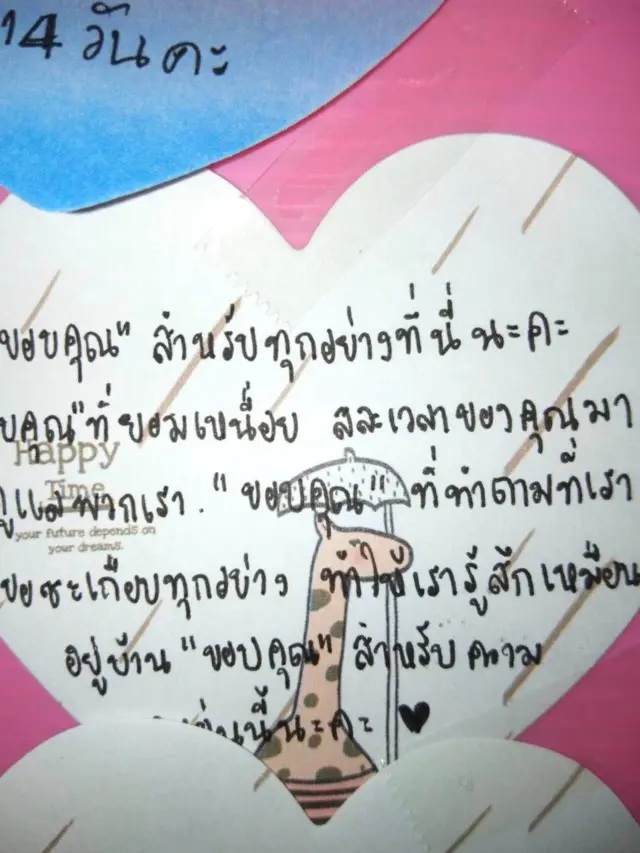 14 วันคะ
ขอบคุณ" สำหรับทุกอย่างที่นี่ นะคะ
บคุณ"ที่ยอมเหนื่อย สละเวลาของคุณมา
ดูแลพวกเรา. "ขอบคุณ" ที่ทำตามที่เรา
Happy
Time
your future depends on
your dreams.
ขอซะเกือบทุกอย่าง ทำให้เรารู้สึกเหมือน
อยู่บ้าน "ขอบคุณ" สำหรับความ
นี้นะคะ ♥